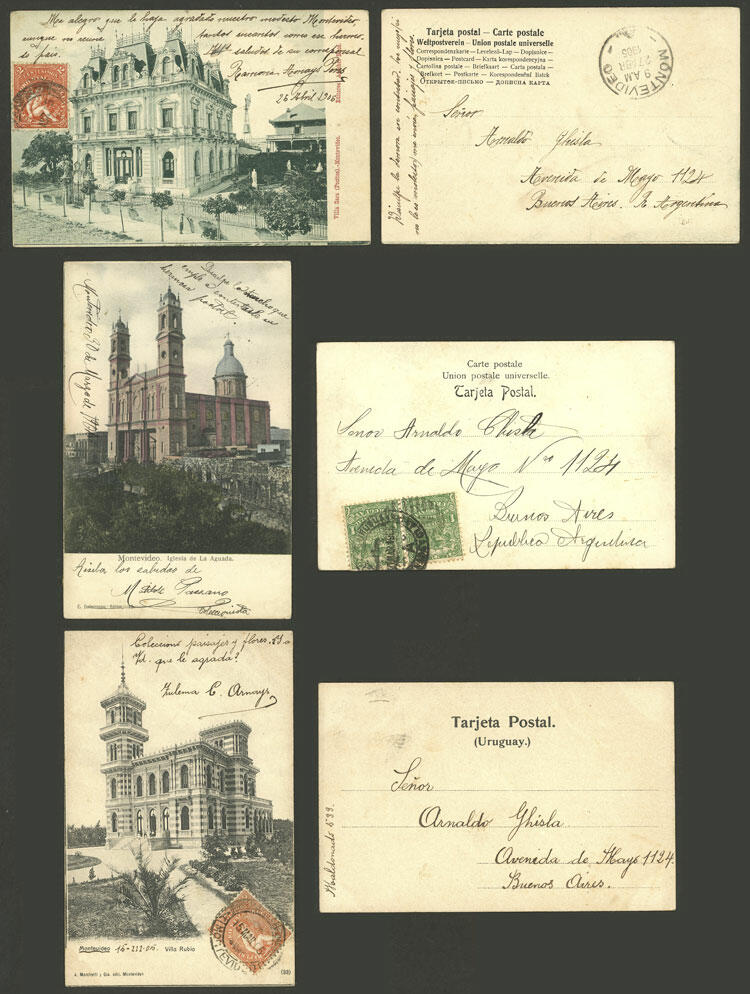 Me alegro que le haya agradado nuestro modesto Montevideo
aunque no reune tantos encantos como ese hermoso
pais. saludos de su corresponsal
Ramona Arnays
26 Abril 1906
Villa Sara (Pocitos).-Montevideo.
Tarjeta postal — Carte postale
Weltpostverein — Union postale universelle
Correspondenzkarte — Levelező-Lap — Dopisnice
Dopisnica — Postcard — Karta korespondencyjna
Cartolina postale — Briefkaart — Carta postala
Brefkort — Postkarte — Korespondenční lístek
ОТКРЫТОЕ ПИСЬМО — ДОПИСНА КАРТА
MONTEVIDEO
9 AM
Señor
Arnaldo Ghisla
Avenida de Mayo 1124
Buenos Aires. R. Argentina
Disculpe la
hermosa postal.
Montevideo 30 de Marzo de
Montevideo. Iglesia de La Aguada.
Reciba los saludos de
Coleccionista
Carte postale
Union postale universelle.
Tarjeta Postal.
Señor Arnaldo Ghisla
Avenida de Mayo Nro 1124
Buenos Aires
Republica Argentina
Colecciono paisajes y flores. Y a
Vd. que le agrada?
Zulema C. Arnays
Montevideo 16-III-06. Villa Rubio
A. Marchetti y Cia. edit. Montevideo
(33)
Tarjeta Postal.
(Uruguay.)
Señor
Arnaldo Ghisla
Avenida de Mayo 1124.
Buenos Aires.
Maldonado 599